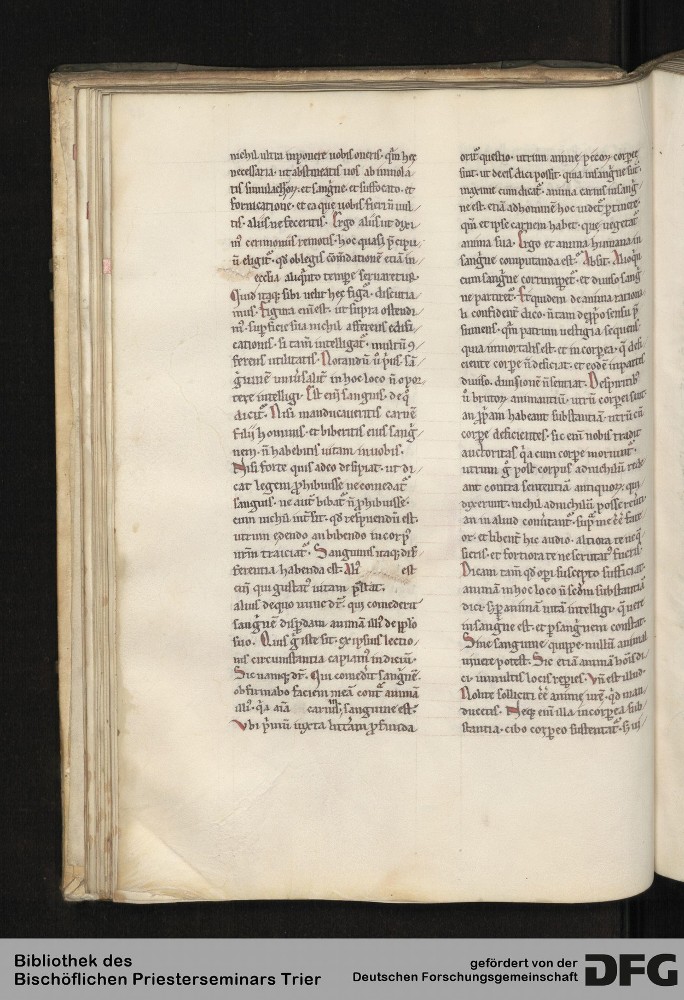 nichil ultra inponere uobis oneris. qm̄ hęc
necessaria. ut abstineatis uos ab immola
tis simulachroꝝ. et sangͥne. et suffocato. et
fornicatione. et ea que uobis fieri n̄ uul
tis. aliis ne feceritis. Ergo aliis ut dixi
mꝰ cerimoniis remotis. hoc quasi p̄cipu
ū eligit᷑. qd̓ ob legis cōm̄datione etiā in
ęcclia aliqͣnto tempe seruaretur.
Quid itaqꝫ sibi uelit hęc figͣ. discutia
mus. Figura eni͂ est. ut supra ostendi
mꝰ. sup̄ficie sua nichil afferens edifi
cationis. si tam̄ intelligat᷑. multū ꝯ
ferens utilitatis. Notandū ū p̓us. sā
gͥnine uniūsalit̓ in hoc loco n̄ opor
tere intelligi. Est eni͂ sanguis. de qͦ
dicit᷑. Nisi manducaueritis carnē
filii hominis. et biberitis eius sangͥ
nem. n̄ habebitis uitam in uobis.
Nisi forte quis adeo desipiat. ut di
cat legem ꝓhibuisse ne comedat᷑
sanguis. ne aut̄ bibat᷑ n̄ ꝓhibuisse.
cum nichil int̓sit. qd̓ respuendū est.
utrum edendo an bibendo in corpͥ
nr̄m traiciat᷑. Sanguinis itaqꝫ dif
ferentia habenda est. Aliꝰ est
eni͂ qui gustatꝰ uitam p̄stat.
alius de quo nunc dr̄. qui comederit
sangͥnē disp̄dam animā illiꝰ de pplo
suo. Quis gͦ iste sit. ex ipsius lectio
nis circumstantia capiamꝰ indiciū.
Sic namqꝫ dr̄. Qui comedit sangͥnē.
obfirmabo faciem meā contͣ animā
illiꝰ. qͥa aīa carnis; sanguine est.
Vbi p̓mū iuxta litt̓am ꝓfunda
orit᷑ questio. utrum anime pecoꝝ corpeę
sint. ut de eis dici possit. quia in sangͥne sūt.
maxime cum dicat᷑. anima carnis in sangͥ
ne est. etiā ad hominē hoc uidet᷑ ꝑtinere.
qm̄ et ipse carnem habet. que uegetat᷑
anima sua. Ergo et anima humana in
sangͥne computanda est. Absit. Alioqͥ
cum sangͥne corrumpet᷑. et diuiso sangͥ
ne partiret᷑. Et quidem de anima rationa
li confident̓ dico. n̄ tam de ꝓpͥo sensu p̄
sumens. qͣm patrum uestigia sequens.
quia inmortalis est. et incorꝑea. qͥ defi
ciente corpe n̄ deficiat. et eodē in partes
diuiso. diuisionē n̄ sentiat. De spiritibꝰ
ū brutoꝝ animantiū. utrū corpei sint
an ꝓpͥam habeant substantiā. utrū cū
corpe deficientes. sic eni͂ nobis tradit
auctoritas qͥa cum corpe moriunt᷑.
utrum gͦ post corpus adnichilū rede
ant contra sententiā antiquoꝝ. qui
dixerunt. nichil adnichilū posse reuti.
an in aliud conūtant᷑. suꝑ me ē͂ē fate
or. et libent̓ hic audio. altiora te ne qͣ
sieris. et fortiora te ne scrutatꝰ fueris.
Dicam tam̄ qd̓ opͥ suscepto sufficiat.
animā in hoc loco n̄ scd̓m substantiā
dici. sꝫ p animā uitā intelligi. qͥ uere
in sangͥne est. et p sangͥnem constat.
Sine sanguine quippe nullū animal
uiuere potest. Sic etiā animā hoīs di
ci. in multis locis repies. Vn̄ est illud.
Nolite solliciti ē͂ē anime ur̄e. qͥd man
ducetis. Neqꝫ eni͂ illa incorporea sub
stantia. cibo corpeo sustentat᷑. sꝫ ui
Bibliothek des
Bischöflichen Priesterseminars Trier
gefördert von der
Deutschen Forschungsgemeinschaft
DFG